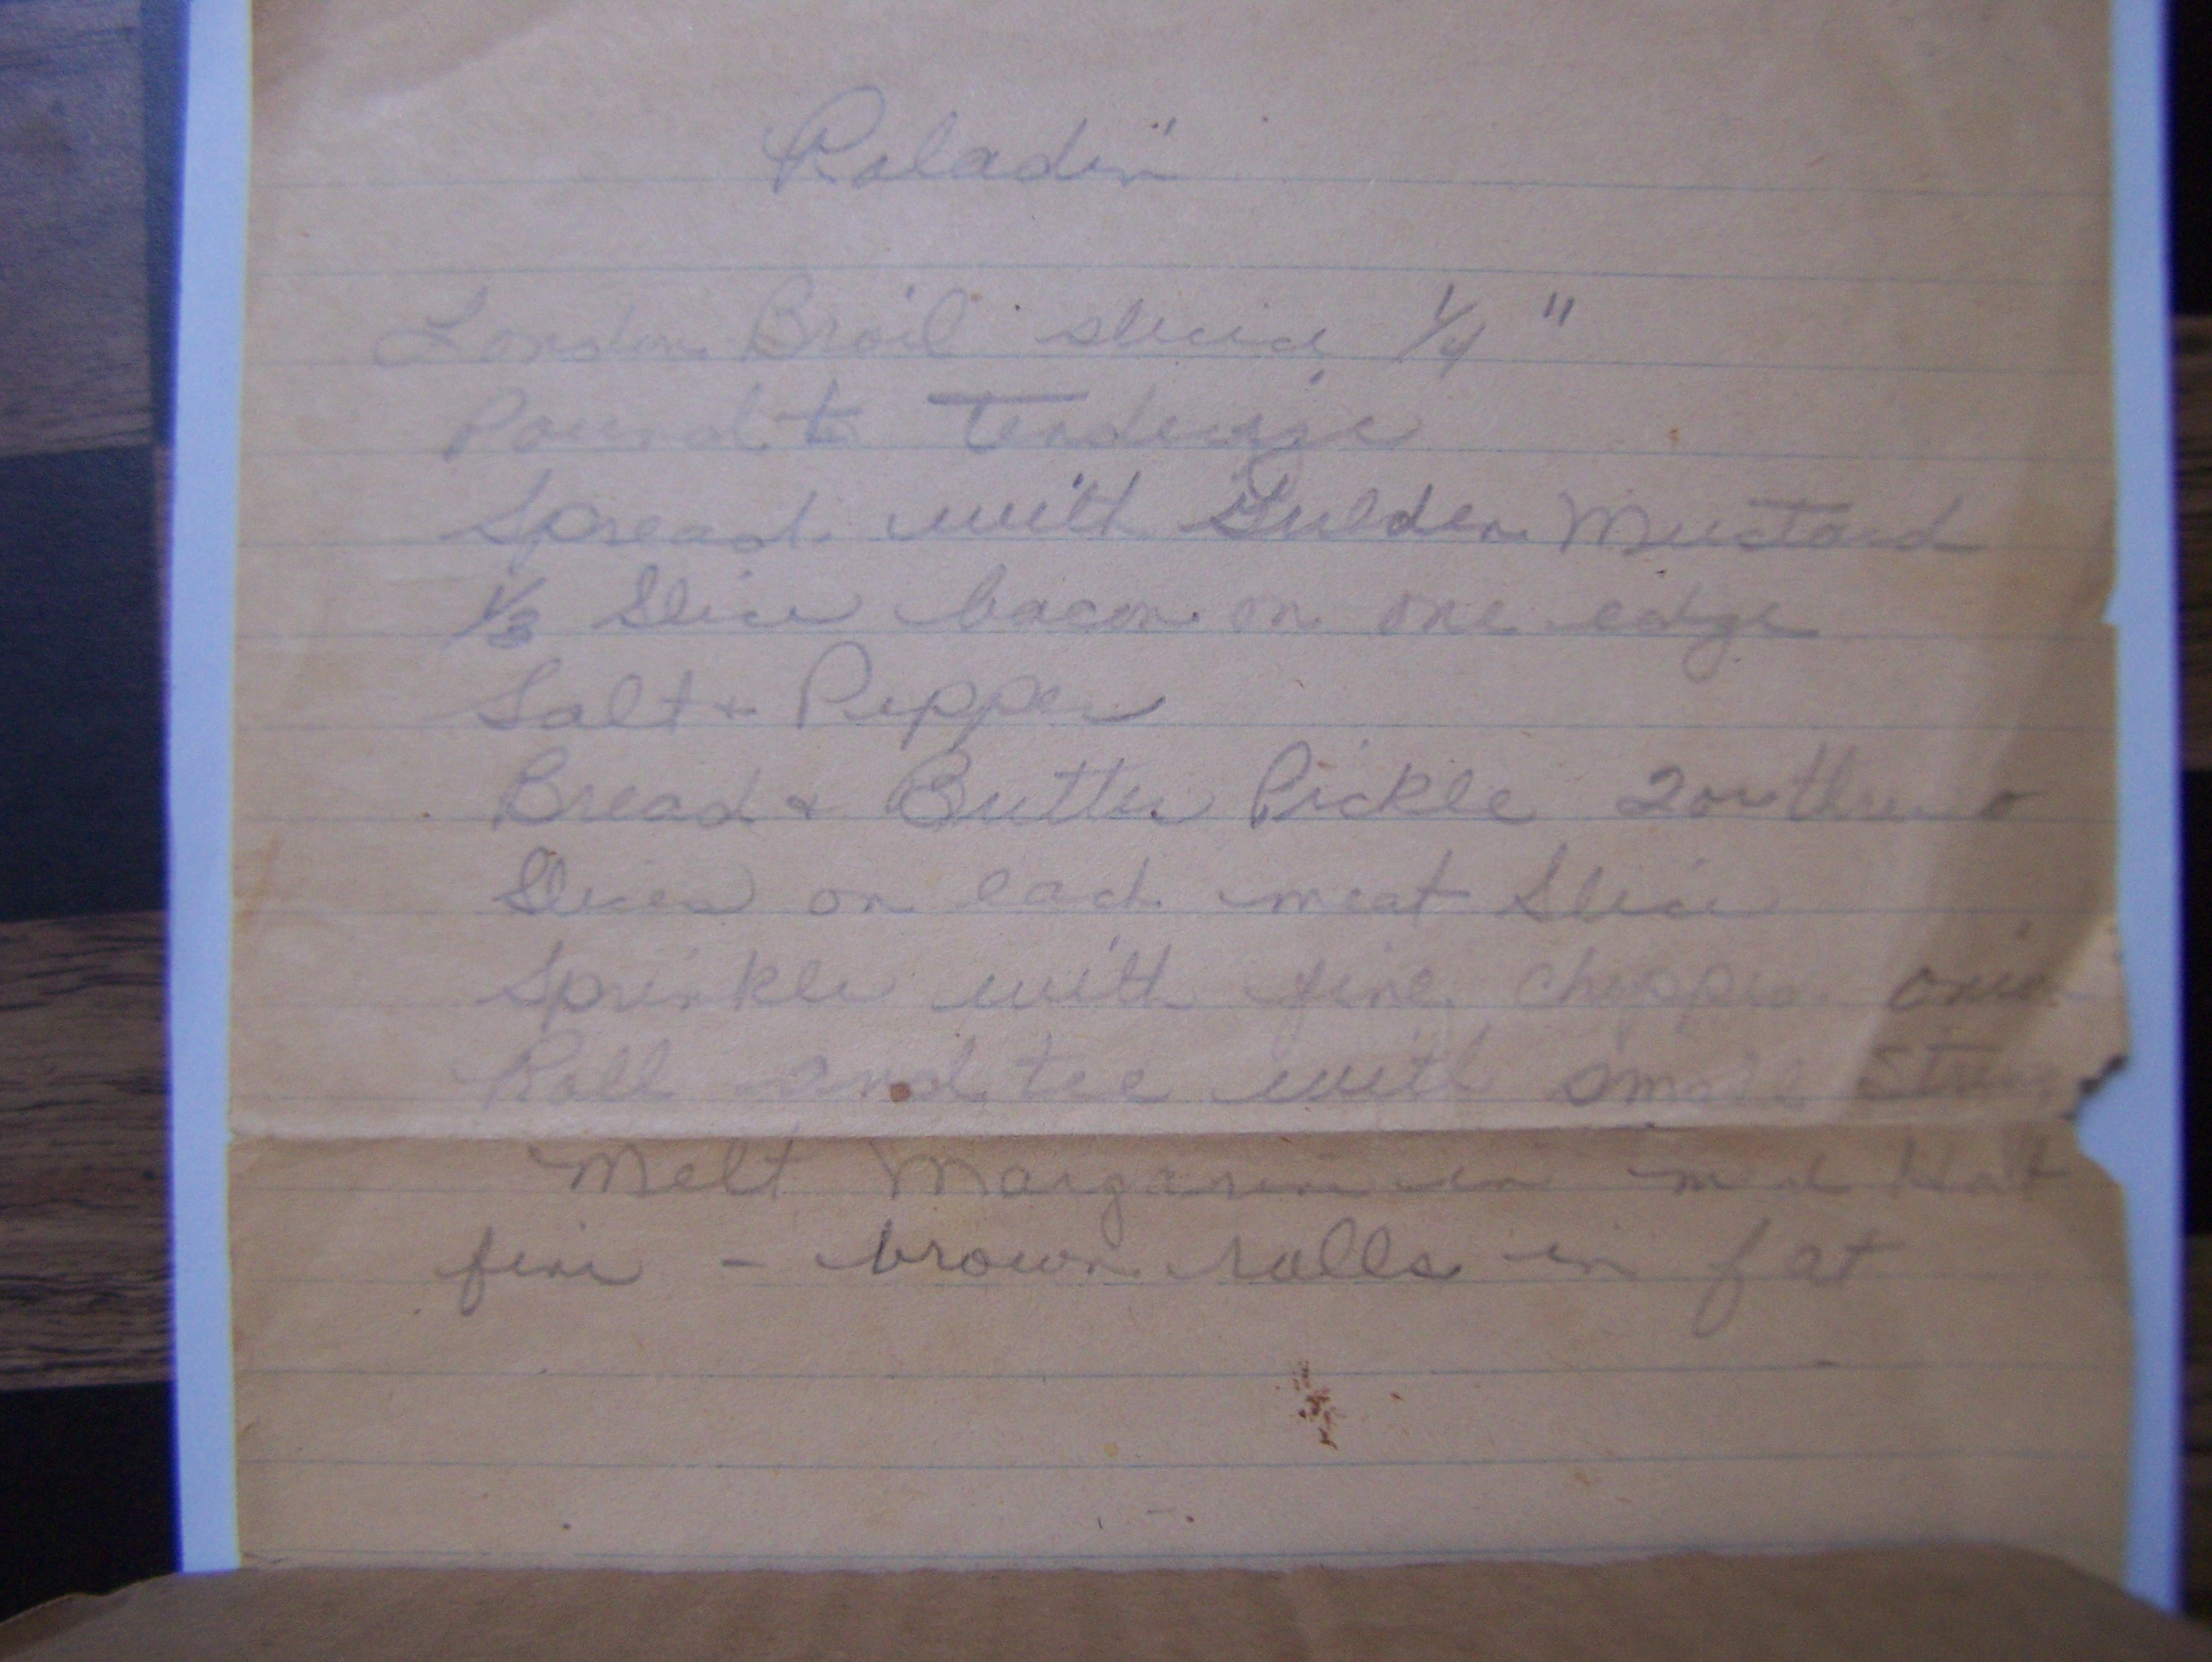 Roladin"
London Broil sliced 1/4"
Pound to Tenderize
Spread with Gulden Mustard
1/3 Slice bacon on one edge
Salt & Pepper
Bread & Butter Pickle 2 or three
Slices on each meat Slice
Sprinkle with fine chopped onion
Roll and tee with small String
Melt Margarine in med Hot
fire - brown rolls in fat